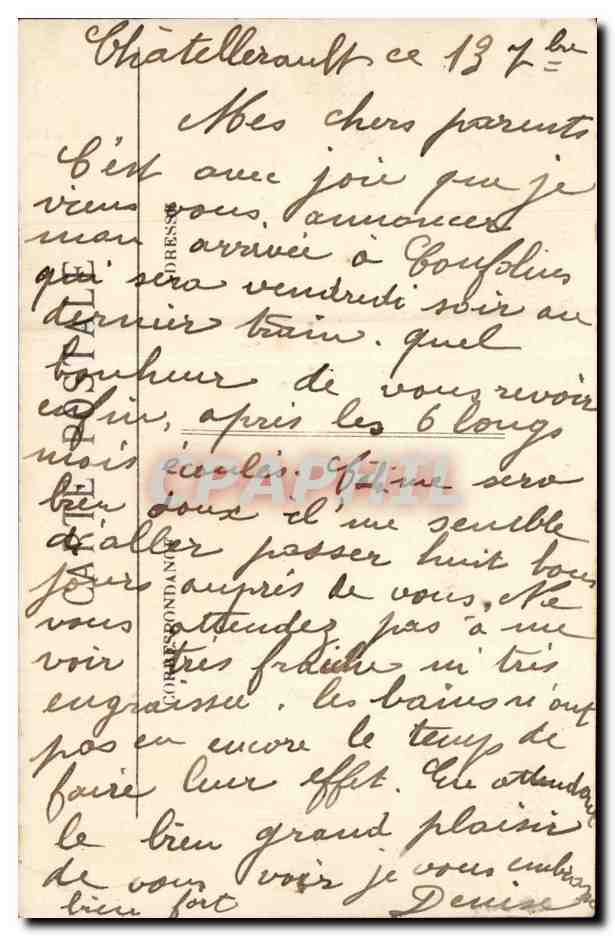 Châtellerault ce 13 7bre
Mes chers parents
C'est avec joie que je
viens vous annoncer
mon arrivée à Couhé
qui sera vendredi soir au
dernier train. quel
bonheur de vous revoir
enfin, après les 6 longs
mois écoulés. Cà me sera
bien doux il me semble
d'aller passer huit bons
jours auprès de vous. Ne
vous attendez pas à me
voir très fraîche ni très
engraissée. les bains n'ont
pas eu encore le temps de
faire leur effet. En attendant
le bien grand plaisir
de vous voir je vous embrasse
bien fort Denise
CARTE POSTALE
CORRESPONDANCE
ADRESSE
CPAPHIL